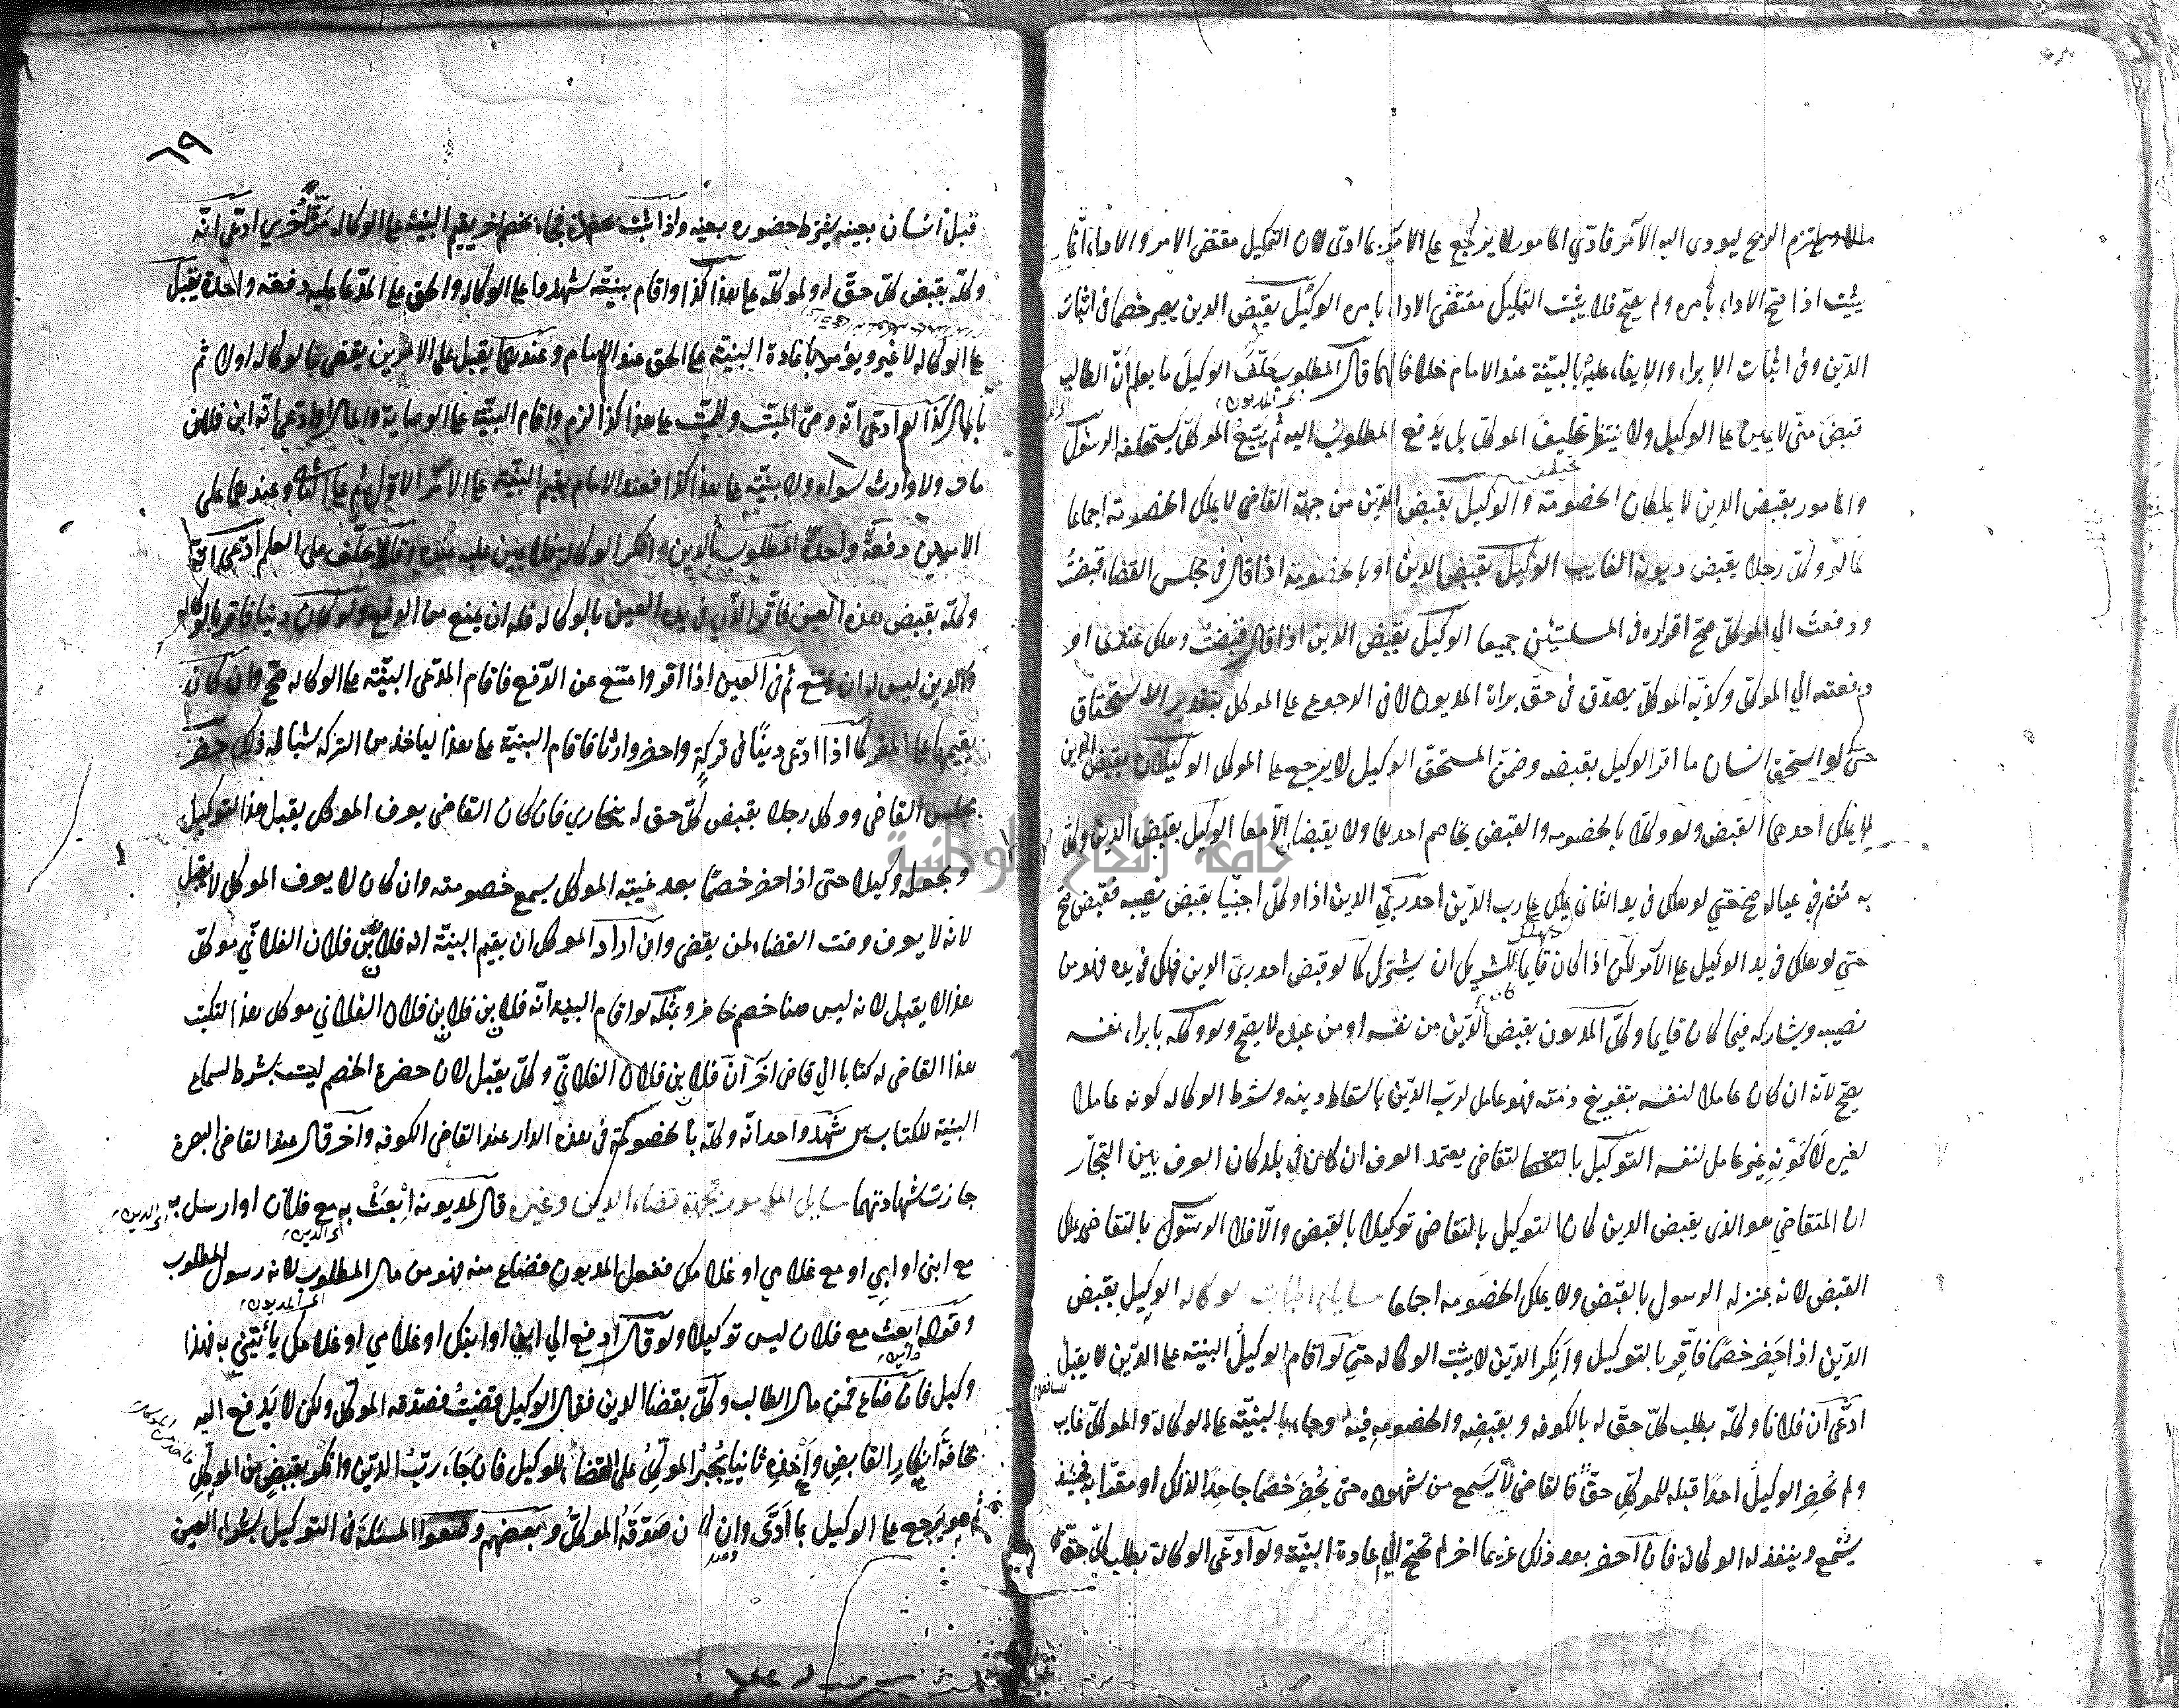 يلتزم الربح ليودى اليه الآمر فادي المامور لا يرجع على الامر بما ادى لان التمليك مقتضى الامر والاداء انما
يثبت اذا صح الاداء بامره ولم يصح فلا يثبت التمليك مقتضى الاداء بامره الوكيل بقبض الدين يصير خصما فى اثبات
الدين وفى اثبات الابراء والايفاء عليه بالبينة عند الامام خلافا لهما قال المطلوب حلف الوكيل ما يعلم ان الطالب
قبض منى لا يمين على الوكيل ولا ينتظر تحليف الموكل بل يدفع المطلوب اليه ثم يتبع الموكل يستحلفه الرسول
اى المديون
والمامور بقبض الدين لا يملكان الخصومة والوكيل بقبض الدين من جهة القاضى لا يملك الخصومة اجماعا
كما لو وكل رجلا بقبض ديون الغايب الوكيل بقبض الدين او بالخصومة اذا قال فى مجلس القضاء قبضت
ودفعت الي الموكل صح اقراره فى المسئلتين جميعا الوكيل بقبض الدين اذا قال قبضت وهلك عندى او
دفعته الي الموكل وكذبه الموكل يصدق فى حق براة المديون لا فى الرجوع على الموكل بتقدير الاستحقاق
حتى لو استحق انسان ما اقر الوكيل بقبضه وضمن المستحق الوكيل لا يرجع على الموكل الوكيلان بقبض الدين
لا يملك احدهما القبض ولو وكلا بالخصومه والقبض يخاصم احدهما ولا يقبضا الا معا الوكيل بقبض الدين وكل
به من فى عياله صح حتي لو هلك فى يد الثانى يهلك على رب الدين احد ربي الدين اذا وكل اجنبيا بقبض نصيبه فقبض صح
حتي لو هلك فى يد الوكيل على الآمر لكن اذا كان قايما للشريك ان يشترك كما لو قبض احد ربى الدين فهلك فى يده فهو من
نصيبه ويشاركه فيما كان قايما وكل المديون بقبض الدين من نفسه او من عبده لا يصح ولو وكله بابراء نفسه
يصح لانه ان كان عاملا لنفسه بتفريغ ذمته فهو عامل لرب الدين باسقاط دينه وشرط الوكاله كونه عاملا
لغيره لا كونه غير عامل لنفسه التوكيل بالتقاضى يعتمد العرف ان كان فى بلد كان العرف بين التجار
ان المتقاضي هو الذى يقبض الدين كان التوكيل بالتقاضى توكيلا بالقبض والا فلا الرسول بالتقاضى يملك
القبض لانه بمنزله الرسول بالقبض ولا يملك الخصومه اجماعا مسايل اثبات الوكاله الوكيل بقبض
الدين اذا احضر خصما فاقر بالتوكيل وانكر الدين لا يثبت الوكاله حتي لو اقام الوكيل البينه على الدين لا يقبل
ادعى ان فلانا وكله بطلب كل حق له بالكوفه وبقبضه والخصومه فيه وجاء بالبينة على الوكالة والموكل غايب
ولم يحضر الوكيل احدا قبله للموكل حق فالقاضى لا يسمع من شهوده حتى يحضر خصما جاحدا لذلك او مقرا به فحينئذ
يسمع وينفذ له الوكالة فان احضر بعد ذلك غريما اخر لم يحتج الي اعادة البينة ولو ادعى الوكالة بطلب كل حق
٦٩
قبل انسان بعينه يشترط حضوره بعينه واذا ثبت بحضرة فجاء بخصم اخر يقيم البينة على الوكاله مرة اخري ادعى انه
وكله بقبض كل حق له ولموكله على هذا كذا واقام بينة شهدوا على الوكاله والحق على المدعا عليه دفعه واحدة يقبل
على الوكاله لا غير ويؤمر باعادة البينة على الحق عند الامام وعندهما يقبل على الامرين يقضى بالوكاله اولا ثم
بالمال كذا لو ادعى انه وصى الميت وللميت على هذا كذا لزم واقام البينة على الوصاية والمال او ادعى انه ابن فلان
مات ولا وارث سواه وله بينة على هذا كذا فعند الامام يقيم البينة على الامر الاول ثم على الثانى وعندهما على
الامرين دفعة واحدة المطلوب بالدين انكر الوكاله فلا يمين عليه عنده وقالا يحلف على العلم ادعى انه
وكله بقبض هذه العين فاقر الذي فى يده العين بالوكاله فله ان يمنع من الدفع ولو كان دينا فاقر بالوكاله
والدين ليس له ان يمتنع ثم فى العين اذا اقر وامتنع عن الدفع فاقام المدعى البينة على الوكاله صح وان كان
يقيمها على المقر كما اذا ادعى دينا فى تركة واحضر وارثا فاقام البينة على هذا لياخذ من التركه شيا له ذلك حضر
مجلس القاضى ووكل رجلا بقبض كل حق له ببخاري فان كان القاضى يعرف الموكل يقبل هذا التوكيل
ويجعله وكيلا حتى اذا احضر خصما بعد غيبة الموكل يسمع خصومته وان كان لا يعرف الموكل لا يقبل
لانه لا يعرف وقت القضاء لمن يقضى وان اراد الموكل ان يقيم البينة انه فلان بن فلان الفلاني موكل
هذا لا يقبل لانه ليس هنا خصم حاضر وبمثله لو اقام البينه انه فلان بن فلان بن فلان الفلاني موكل هذا ليكتب
هذا القاضى له كتابا الي قاض آخر ان فلان بن فلان الفلاني وكل يقبل لان حضرة الخصم ليست بشرط لسماع
البينة للكتاب شهد واحد انه وكله بالخصومة فى هذه الدار عند القاضى الكوفه وآخر قال عند القاضى البصرة
جازت شهادتهما مسايل المامور بجهة قضاء الدين وغيره قال لمديونه ابعث به مع فلان او ارسل به
اى الدين
مع ابنى او ابني او مع غلامي او غلامك ففعل المديون فضاع منه فهو من مال المطلوب لانه رسول المطلوب
اى المديون
وقوله ابعث مع فلان ليس توكيلا ولو قال ادفع الي ابنى او ابنك او غلامي او غلامك يأتيني به فهذا
وكيل فان ضاع فمن مال الطالب وكل بقضا الدين فقال الوكيل قضيت فصدقه الموكل ولكن لا يدفع اليه
مخافة انكار القابض واخذه ثانيا يجبر الموكل على القضاء للوكيل فان جاء رب الدين وانكر بقبض من الموكل
ثم هو يرجع على الوكيل بما ادى وان كان صدقه الموكل وبعضهم وضعوا المسئلة فى التوكيل بشراء العين